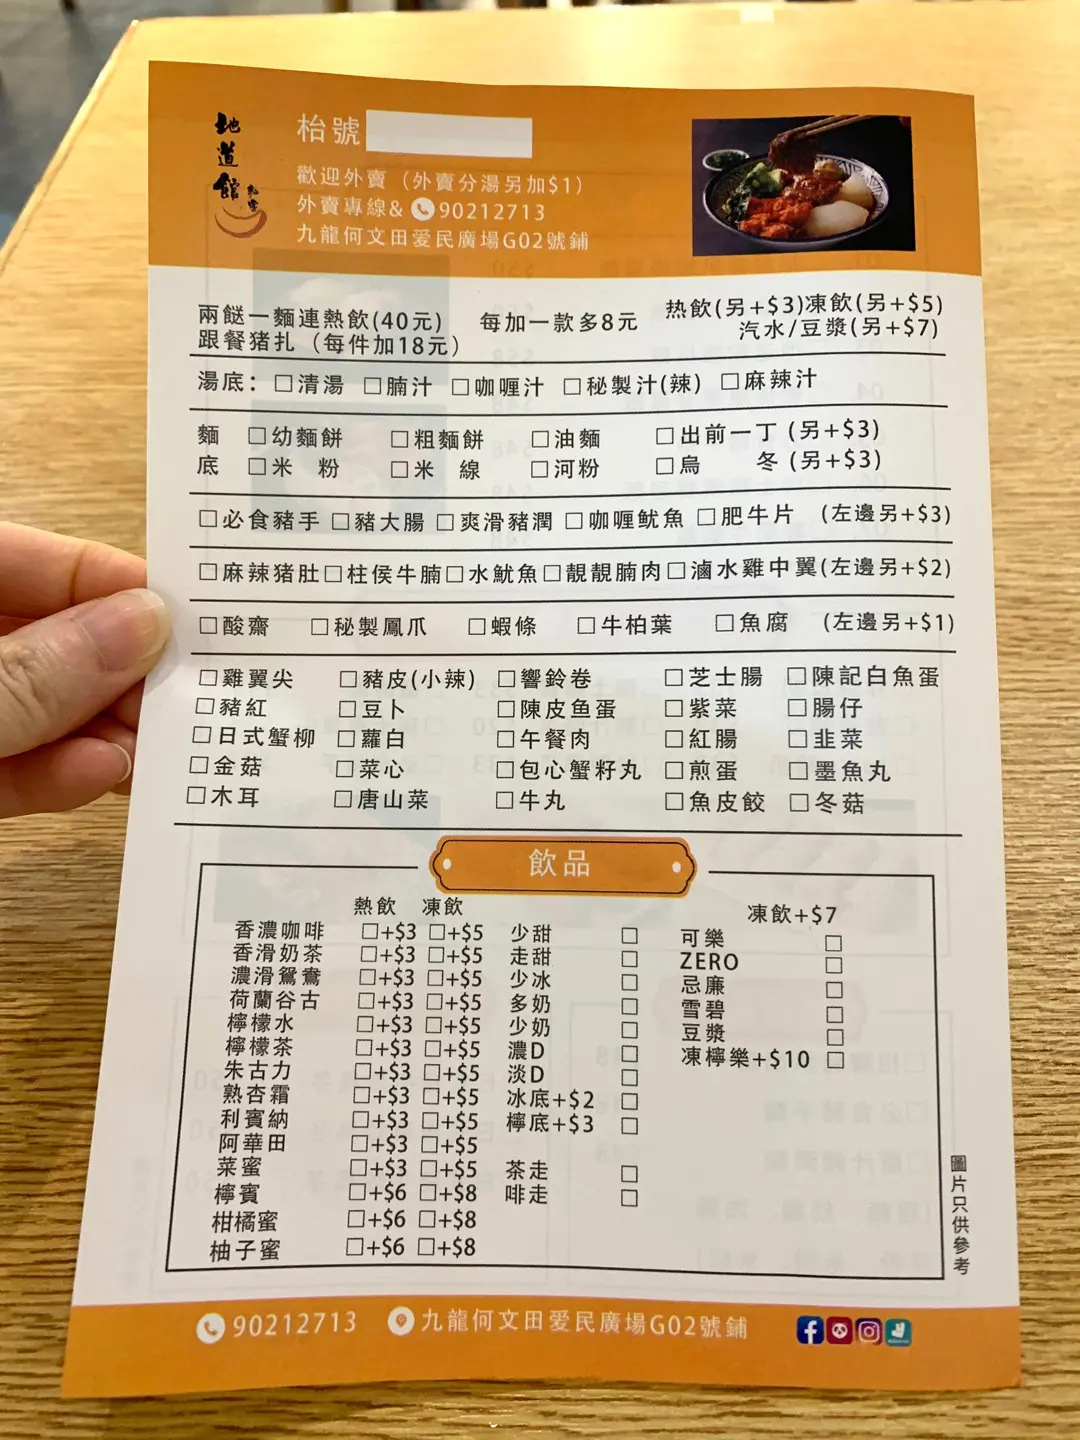 地道館
私宰
枱號
歡迎外賣（外賣分湯另加$1）
外賣專線& 90212713
九龍何文田愛民廣場G02號鋪
兩餸一麵連熱飲(40元) 每加一款多8元 热飲(另+$3)凍飲(另+$5)
跟餐猪扎（每件加18元） 汽水/豆漿(另+$7)
湯底： □清湯 □腩汁 □咖喱汁 □秘製汁(辣) □麻辣汁
麵 □幼麵餅 □粗麵餅 □油麵 □出前一丁 (另+$3)
底 □米 粉 □米 線 □河粉 □烏 冬 (另+$3)
□必食豬手 □豬大腸 □爽滑豬潤 □咖喱魷魚 □肥牛片 (左邊另+$3)
□麻辣猪肚 □柱侯牛腩 □水魷魚 □靚靚腩肉 □滷水雞中翼(左邊另+$2)
□酸齋 □秘製鳳爪 □蝦條 □牛柏葉 □魚腐 (左邊另+$1)
□雞翼尖 □豬皮(小辣) □響鈴卷 □芝士腸 □陳記白魚蛋
□豬紅 □豆卜 □陳皮鱼蛋 □紫菜 □腸仔
□日式蟹柳 □蘿白 □午餐肉 □紅腸 □韭菜
□金菇 □菜心 □包心蟹籽丸 □煎蛋 □墨魚丸
□木耳 □唐山菜 □牛丸 □魚皮餃 □冬菇
飲品
熱飲 凍飲 凍飲+$7
香濃咖啡 □+$3 □+$5 少甜 □ 可樂 □
香滑奶茶 □+$3 □+$5 走甜 □ ZERO □
濃滑鴛鴦 □+$3 □+$5 少冰 □ 忌廉 □
荷蘭谷古 □+$3 □+$5 多奶 □ 雪碧 □
檸檬水 □+$3 □+$5 少奶 □ 豆漿 □
檸檬茶 □+$3 □+$5 濃D □ 凍檸樂+$10 □
朱古力 □+$3 □+$5 淡D □
熟杏霜 □+$3 □+$5 冰底+$2 □
利賓納 □+$3 □+$5 檸底+$3 □
阿華田 □+$3 □+$5
菜蜜 □+$3 □+$5 茶走 □
檸賓 □+$6 □+$8 啡走 □
柑橘蜜 □+$6 □+$8
柚子蜜 □+$6 □+$8
圖片只供參考
90212713 九龍何文田愛民廣場G02號鋪